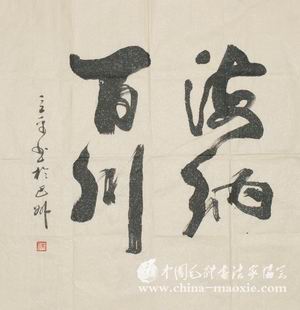 海纳
百川
立平书于巴州
中国毛体书法家协会
www.china-maoxie.com